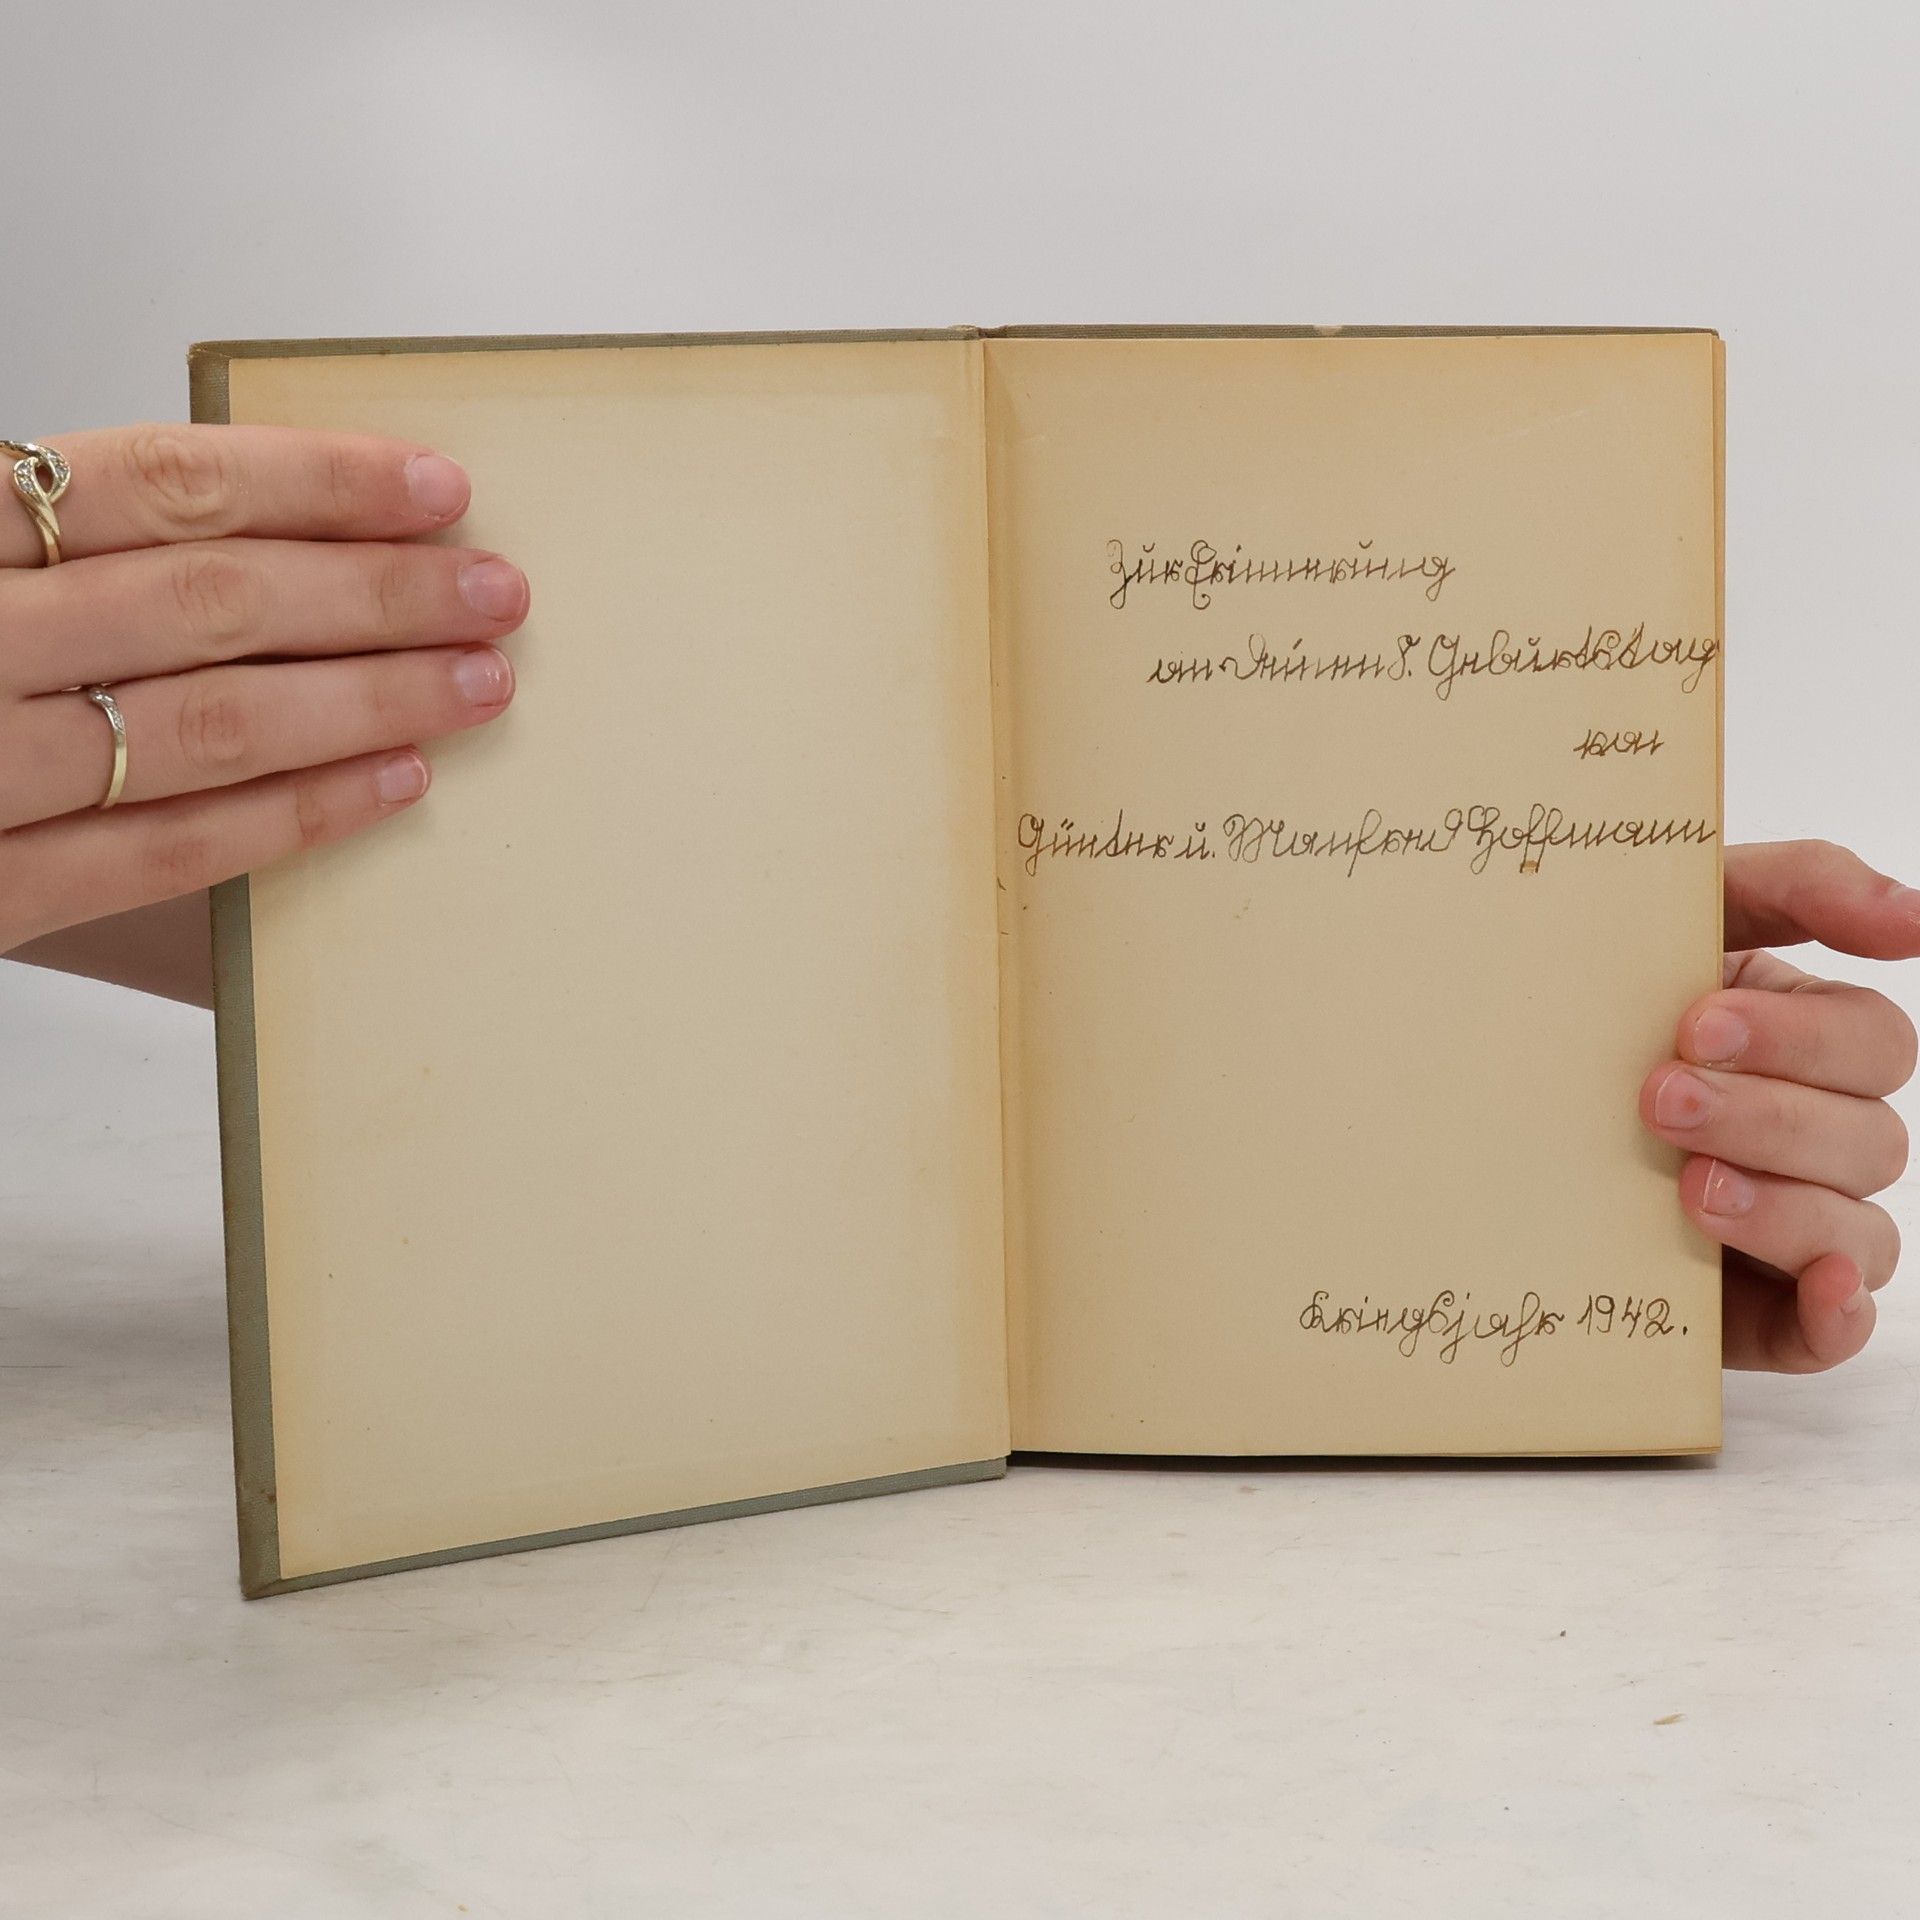 Zur Erinnerung
an Deinen 8. Geburtstag
von
Günter u. Manfred Hoffmann
Kriegsjahr 1942.